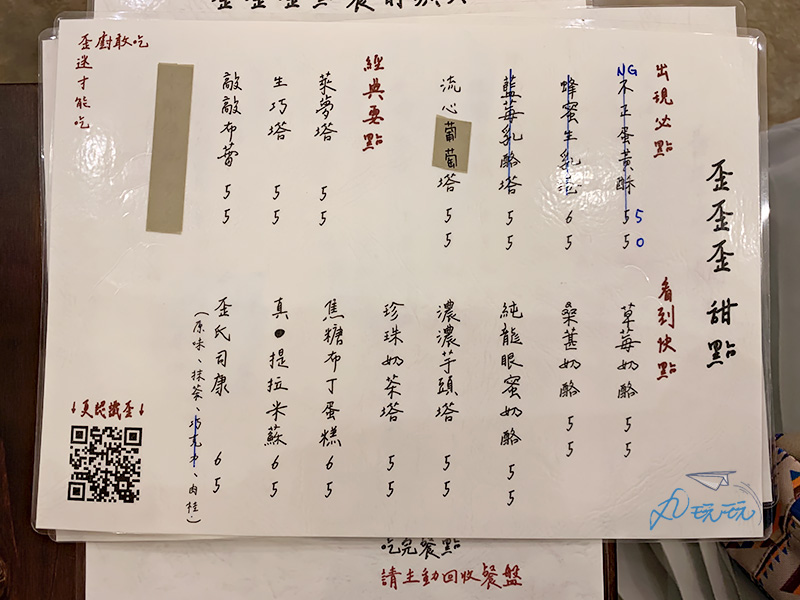 歪歪歪甜點
出現必點
NG不正蛋黃酥 55 50
蜂蜜生乳塔 65
藍莓乳酪塔 55
流心葡萄塔 55
經典要點
萊夢塔 55
生巧塔 55
敲敲布蕾 55
歪廚敢吃
迷才能吃
看到快點
草莓奶酪 55
桑葚奶酪 55
純龍眼蜜奶酪 55
濃濃芋頭塔 55
珍珠奶茶塔 55
焦糖布丁蛋糕 65
真●提拉米蘇 65
歪氏司康 65
(原味、抹茶、巧克力、肉桂)
↓更認識歪↓
吃完餐點
請主動回收餐盤
玩玩